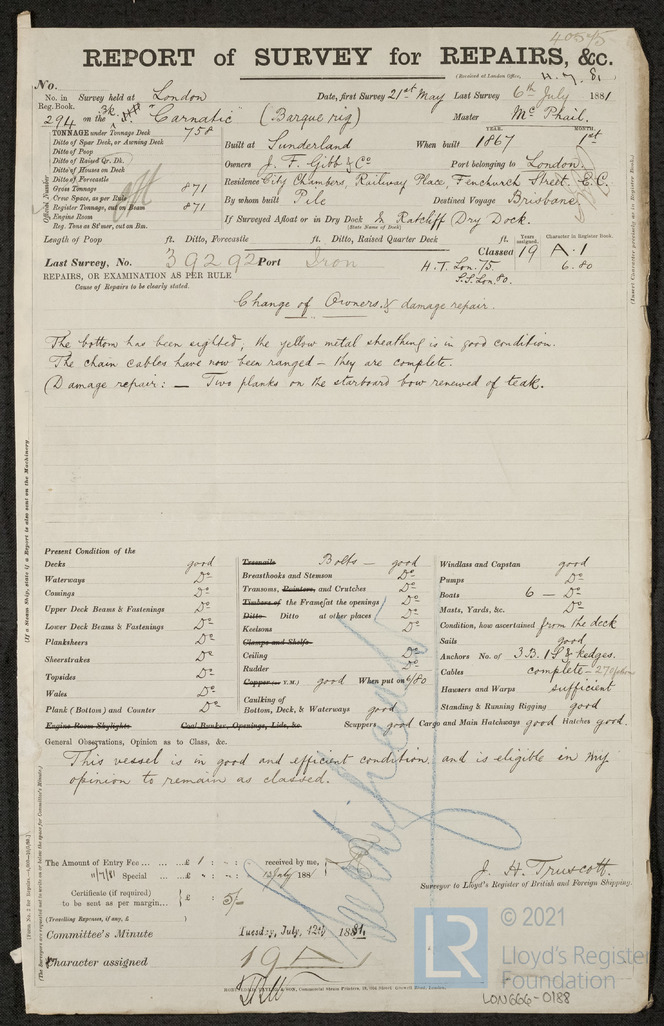 40575
REPORT of SURVEY for REPAIRS, &c.
(Received at London Office, 11.7.81)
No.
No. in Reg. Book. Survey held at London Date, first Survey 21st May Last Survey 6th July 1881
294 on the "Carnatic" (Barque rig) Master Mc Phail.
TONNAGE under Tonnage Deck 758
Ditto of Spar Deck, or Awning Deck
Ditto of Poop
Ditto of Raised Qr. Dk.
Ditto of Houses on Deck
Ditto of Forecastle
Gross Tonnage 871
Crew Space, as per Rule
Register Tonnage, cut on Beam 871
Engine Room
Reg. Tons as St'mer, cut on Bm.
Official Number
YEAR. MONTH.
Built at Sunderland When built 1867 1st
Owners J. F. Gibb & Co Port belonging to London.
Residence City Chambers, Railway Place, Fenchurch Street. E.C.
By whom built Pile Destined Voyage Brisbane
If Surveyed Afloat or in Dry Dock & Ratcliff Dry Dock.
(State Name of Dock)
Length of Poop ft. Ditto, Forecastle ft. Ditto, Raised Quarter Deck ft.
Years assigned. Character in Register Book.
Classed 19 A.1
Last Survey, No. 39292 Port Iron H.T. Lon. 75. 6.80
S.S. Lon 80.
REPAIRS, OR EXAMINATION AS PER RULE
Cause of Repairs to be clearly stated.
Change of Owners & damage repair.
The bottom has been sighted, the yellow metal sheathing is in good condition.
The chain cables have now been ranged – they are complete.
Damage repair: – Two planks on the starboard bow renewed of teak.
(If a Steam Ship, state if a Report is also sent on the Machinery.
(Insert Character precisely as in Register Book.)
Present Condition of the
Decks good
Waterways Do
Comings Do
Upper Deck Beams & Fastenings Do
Lower Deck Beams & Fastenings Do
Planksheers Do
Sheerstrakes Do
Topsides Do
Wales Do
Plank (Bottom) and Counter Do
Engine Room Skylights Coal Bunker, Openings, Lids, &c.
Treenails Bolts – good
Breasthooks and Stemson Do
Transoms, Pointers, and Crutches Do
Timbers of the Frames at the openings Do
Ditto Ditto at other places Do
Keelsons Do
Clamps and Shelfs
Ceiling Do
Rudder Do
Copper (or Y.M.) good When put on 6/80
Caulking of
Bottom, Deck, & Waterways good
Windlass and Capstan good
Pumps Do
Boats 6 – Do
Masts, Yards, &c. Do
Condition, how ascertained from the deck
Sails good
Anchors No. of 3 B. 1 S & kedges.
Cables complete – 270
Hawsers and Warps sufficient
Standing & Running Rigging good
Scuppers good Cargo and Main Hatchways good Hatches good.
General Observations, Opinion as to Class, &c.
This vessel is in good and efficient condition, and is eligible in my
opinion to remain as classed.
The Amount of Entry Fee ... £ 1 : - : - received by me,
11/7/81 Special ... £ - : - : - July 188
Certificate (if required) to be sent as per margin... £ : 5/-
(Travelling Expenses, if any, £ )
J. H. Truscott.
Surveyor to Lloyd's Register of British and Foreign Shipping.
Committee's Minute Tuesday, July, 12th 1881.
Character assigned 19 A 1
© 2021
LR
Lloyd's Register
Foundation
LON666-0188